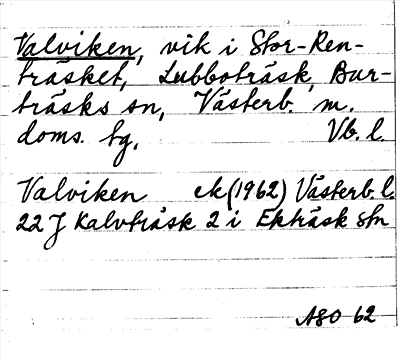 Valviken, vik i Stor-Ren-
träsket, Lubboträsk, Bur-
träsks sn, Västerb. m.
doms. tg, Vb. l.
Valviken ek (1962) Västerb. l.
22 J Kalvträsk 2 i Ekträsk stn
ASO 62